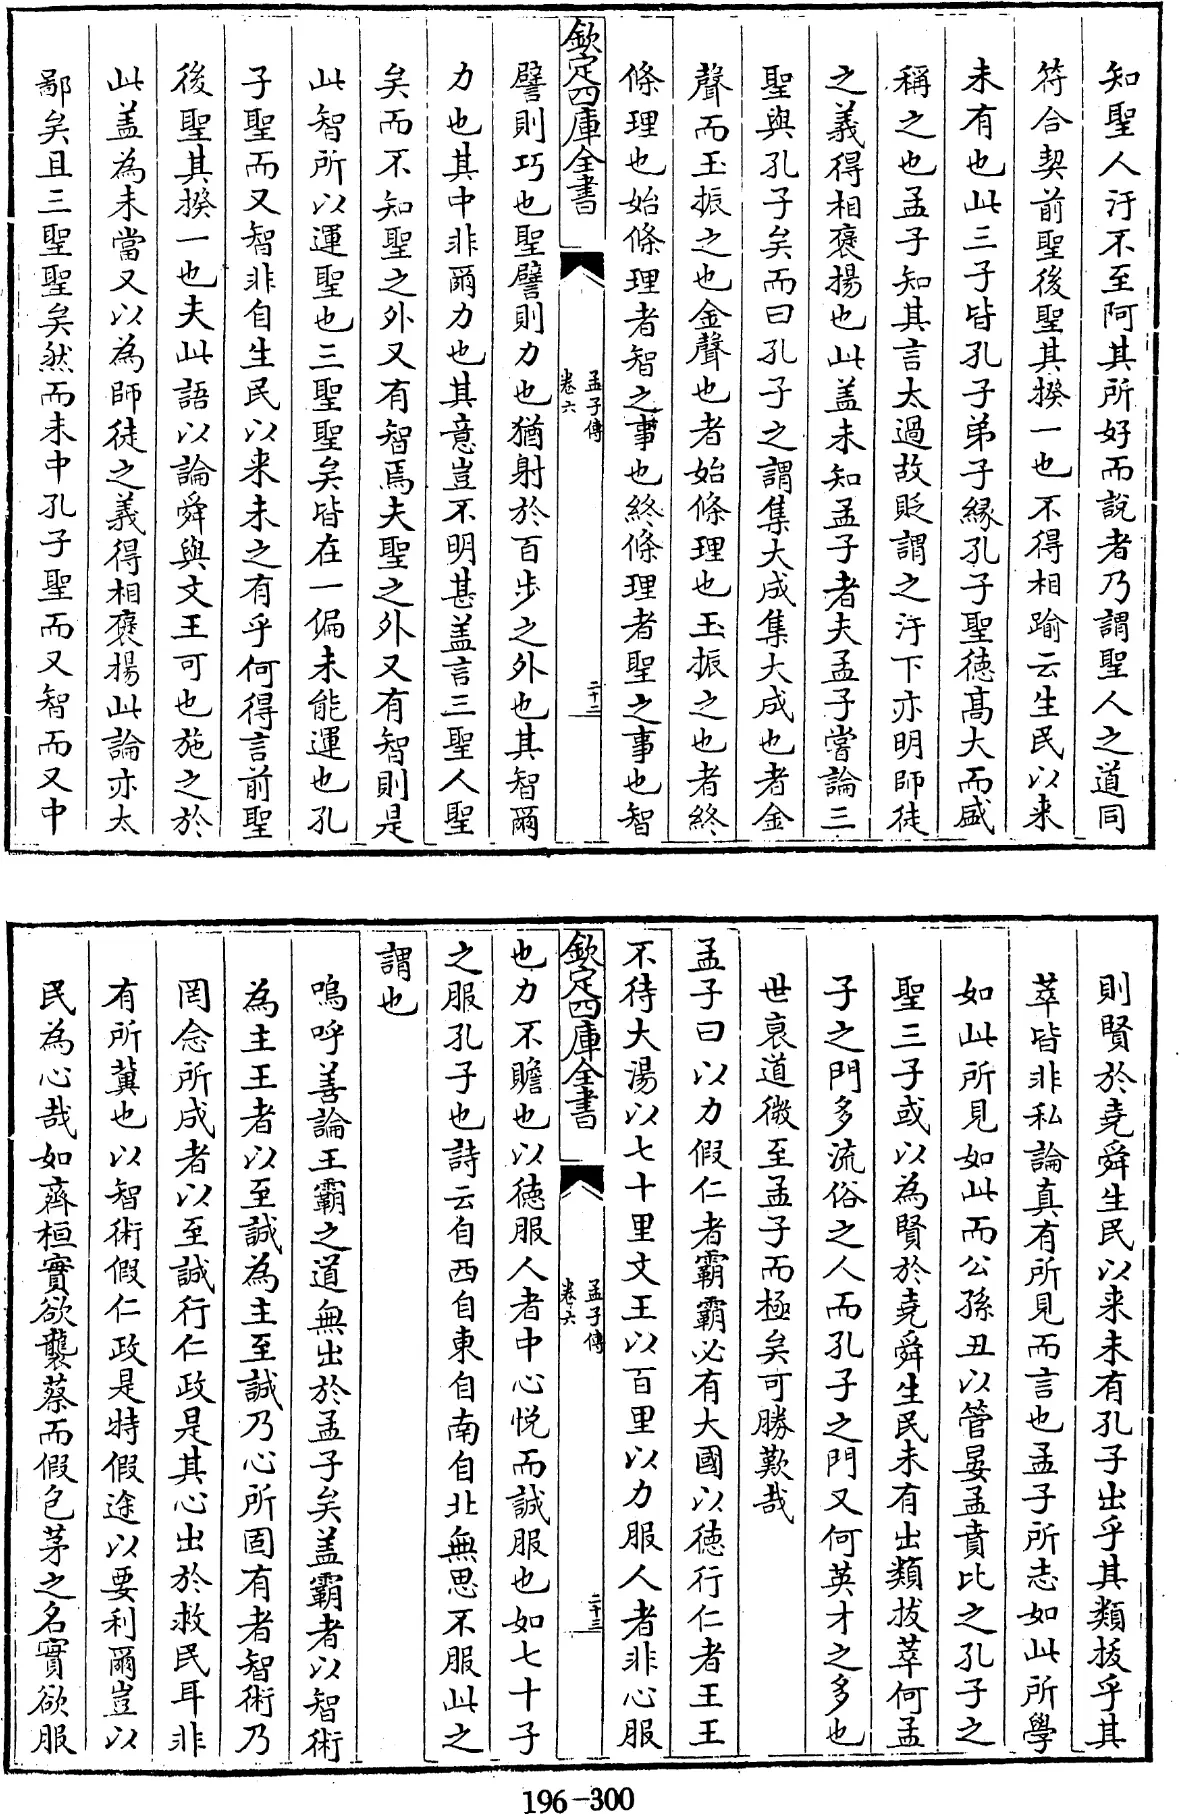 知聖人汙不至阿其所好而說者乃謂聖人之道同
符合契前聖後聖其揆一也不得相踰云生民以来
未有也此三子皆孔子弟子縁孔子聖徳髙大而盛
稱之也孟子知其言太過故貶謂之汙下亦明師徒
之義得相褒揚也此盖未知孟子者夫孟子嘗論三
聖與孔子矣而曰孔子之謂集大成集大成也者金
聲而玉振之也金聲也者始條理也玉振之也者終
條理也始條理者智之事也終條理者聖之事也智
欽定四庫全書
孟子傳
卷六
二十二
譬則巧也聖譬則力也猶射於百步之外也其智爾
力也其中非爾力也其意豈不明甚盖言三聖人聖
矣而不知聖之外又有智焉夫聖之外又有智則是
此智所以運聖也三聖聖矣皆在一偏未能運也孔
子聖而又智非自生民以来未之有乎何得言前聖
後聖其揆一也夫此語以論舜與文王可也施之於
此盖為未當又以為師徒之義得相褒揚此論亦太
鄙矣且三聖聖矣然而未中孔子聖而又智而又中
則賢於堯舜生民以来未有孔子出乎其類拔乎其
萃皆非私論真有所見而言也孟子所志如此所學
如此所見如此而公孫丑以管晏孟賁比之孔子之
聖三子或以為賢於堯舜生民未有出類拔萃何孟
子之門多流俗之人而孔子之門又何英才之多也
世衰道微至孟子而極矣可勝歎哉
孟子曰以力假仁者霸霸必有大國以徳行仁者王王
不待大湯以七十里文王以百里以力服人者非心服
欽定四庫全書
孟子傳
卷六
二十三
也力不贍也以徳服人者中心悅而誠服也如七十子
之服孔子也詩云自西自東自南自北無思不服此之
謂也
嗚呼善論王霸之道無出於孟子矣盖霸者以智術
為主王者以至誠為主至誠乃心所固有者智術乃
罔念所成者以至誠行仁政是其心出於救民耳非
有所冀也以智術假仁政是特假途以要利爾豈以
民為心哉如齊桓實欲襲蔡而假包茅之名實欲服
196-300